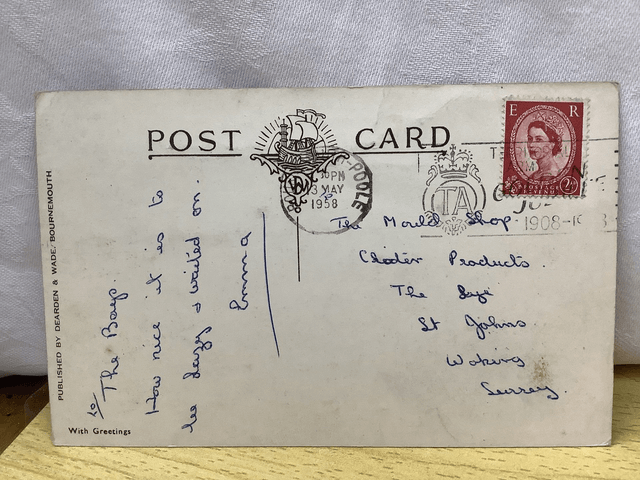 POST CARD
PUBLISHED BY DEARDEN & WADE, BOURNEMOUTH
With Greetings
to The Boys.
How nice it is to
be lazy & waited on.
Emma
PM
3 MAY
1958
POOLE
TA
1908-19
E R
POSTAGE
2½
The Mould Shop
Products.
The
St Johns
Woking
Surrey.